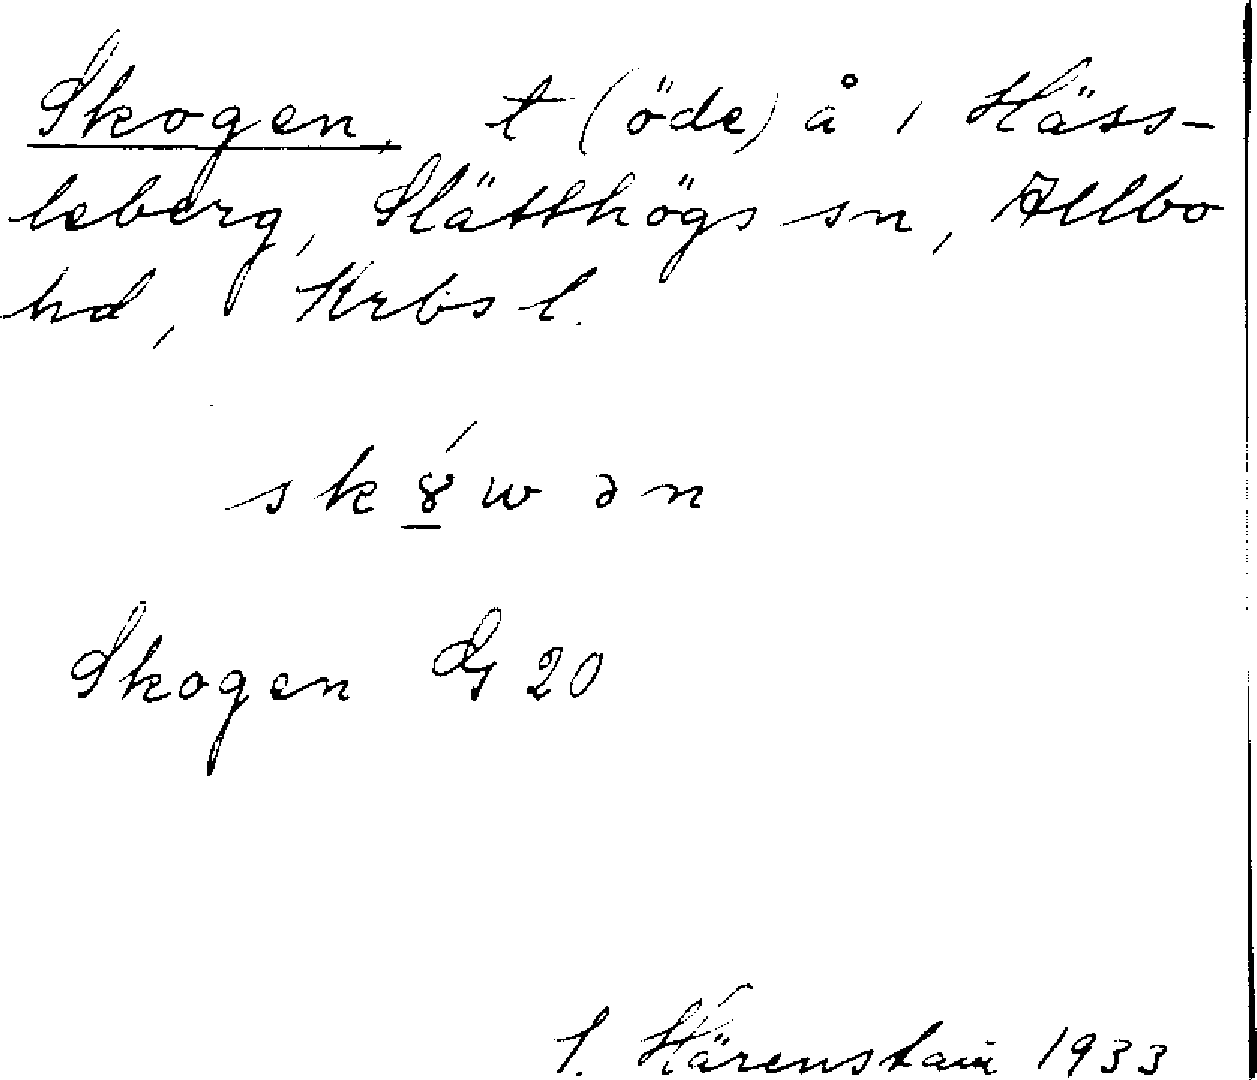 Skogen, t (öde) å 1 Häss-
leberg, Slätthögs sn, Allbo
hd, Krbs l.
sk8́wən
Skogen G 20
S. Härenstam 1933